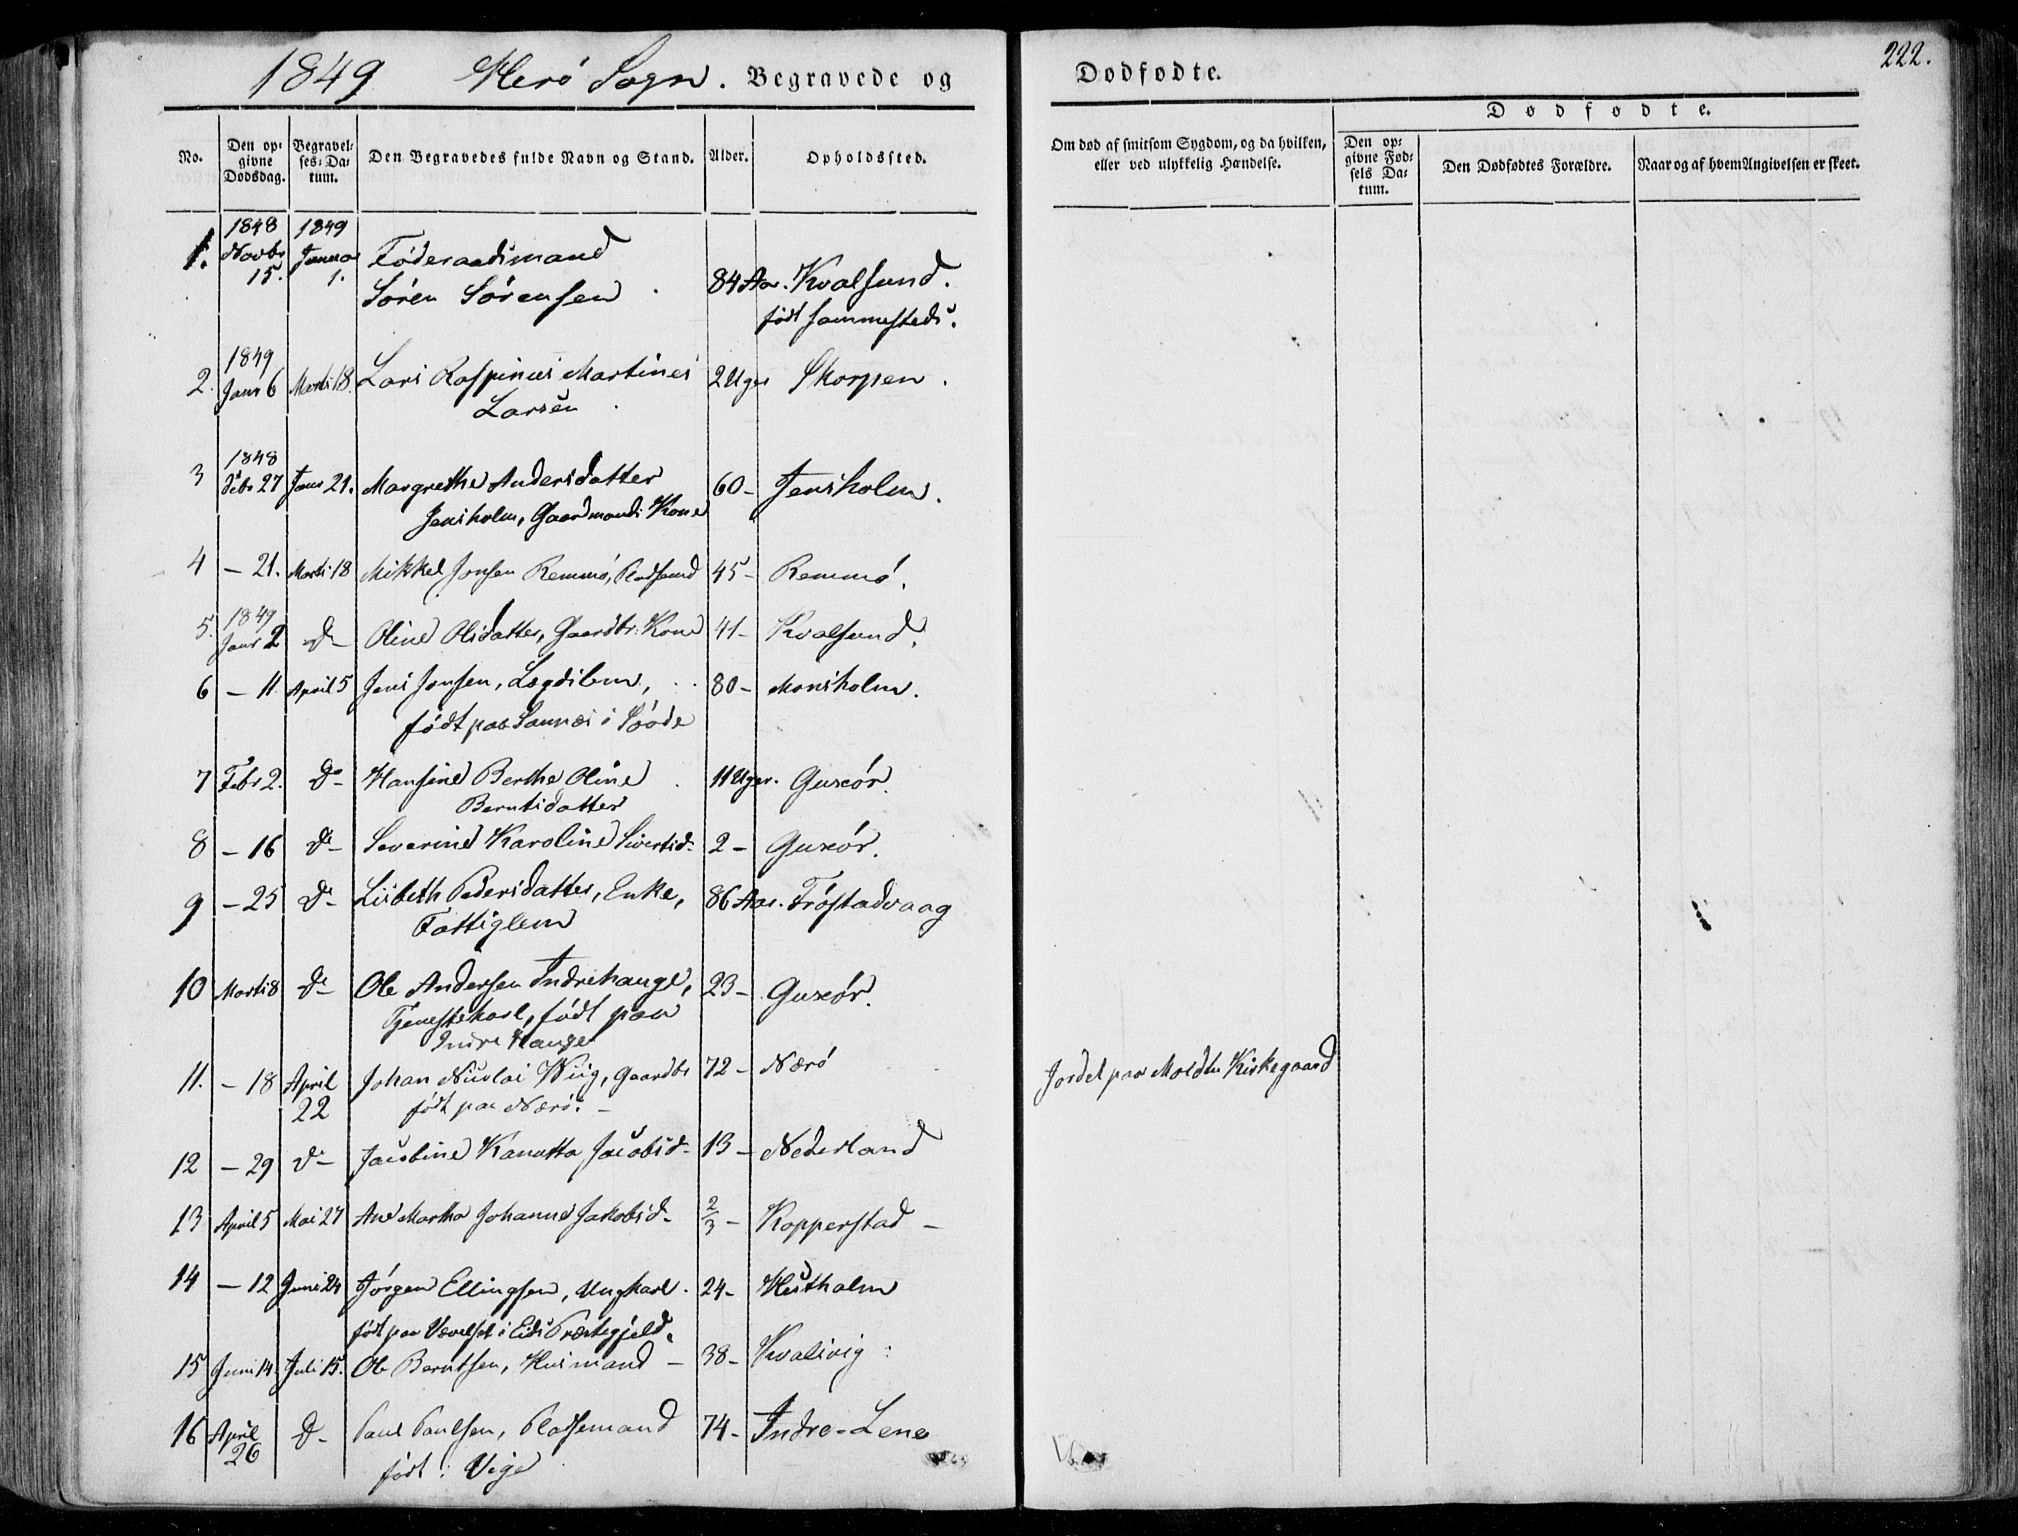 1849 Herö Sogn. Begravede og
Dødfødte.
222.
No.
Den opgivne Dødsdag.
Begravelses-Datum.
Den Begravedes fulde Navn og Stand.
Alder.
Opholdssted.
Om død af smitsom Sygdom, og da hvilken, eller ved ulykkelig Hændelse.
Dødfødte.
Den opgivne Fødsels Datum.
Den Dødfødtes Forældre.
Naar og af hvem Angivelsen er skeet.
1848 1849
1. Novbr 15. Januar 1. Föderaadsmand
Sören Sörensen 84 Aar. Kvalsund.
födt sammesteds.
1849
2. Janr 6 Marti 18. Lars Raspinus Martines 2 Uger Skorpen.
Larsen
1848
3 Debr 27 Janr 21. Margrethe Andersdatter 60 - Jensholm.
Jensholm, Gaardmands Kone
4 - 21. Marti 18 Mikkel Jonsen Remmö, Pladsmd 45 - Remmö.
1849
5. Janr 2 Do - Oline Olsdatter, Gaardbr. Kone 41 - Kvalsund.
6 - 11. April 5 Jens Jonsen, Lægdslem, 80 - Monsholm.
födt paa Sannæs i Svöde
7 Febr 2. Do - Hansine Berthe Oline 11 Uger. Guxör.
Berntsdatter
8 - 16 Do - Severine Karoline Sivertsd - 2 - Guxör.
9 - 25 Do - Lisbeth Pedersdatter, Enke, 86 Aar. Fröstadvaag
Fattiglem
10 Marti 8 Do - Ole Andersen Indrehauge, 23 - Guxör.
Tjenestekarl, födt paa
Indre Hauge
11. - 18 April Johan Nicolai Wiig, Gaardbr 72 - Nærö Jordet paa Moldtu Kirkegaard
22 födt paa Nærö. -
12 - 29 Do - Jacobine Kanutta Jacobsd - 13 - Nederland
13 April 5 Mai 27 Ane Martha Johanne Jakobsd - 2/3 - Kopperstad -
14 - 12 Juni 24 Jörgen Ellingsen, Ungkarl. 24 - Hestholm
födt paa i Eids Præstegjeld.
15 Juni 14. Juli 15. Ole Berntsen, Huusmand - 38 - Kvalsvig
16 April Do - Paul Paulsen, Pladsemand 74 - Indre-Lene
26 födt i Vige